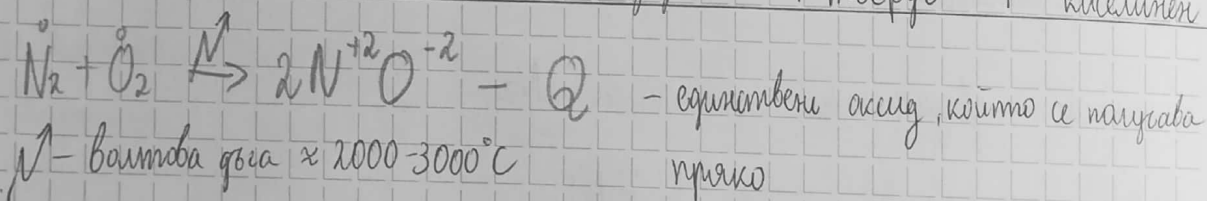 киселинен
N₂⁰ + O₂⁰ ⇾ 2N⁺²O⁻² – Q – единствени оксид, който се получава
N – волтова дъга ≈ 2000-3000°C пряко